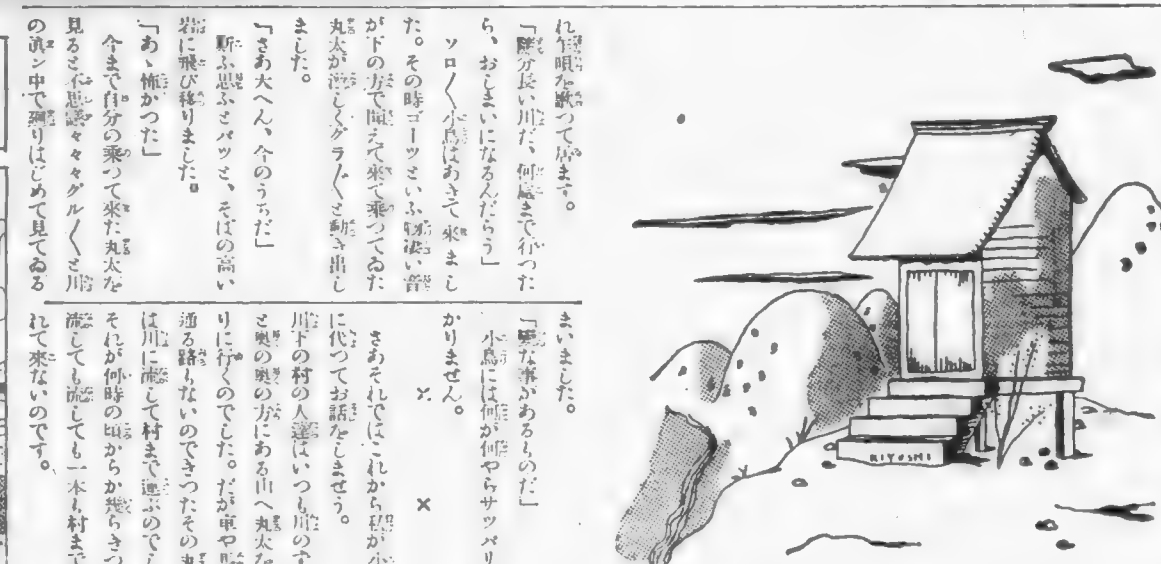 れ乍唄を歌つて居ます。
「随分長い川だ、何處まで行つた
ら、おしまいになるんだらう」
ソロ〳〵小鳥はあきて來まし
た。その時ゴーツといふ物凄い音
が下の方で聞えて來て乘つてゐた
丸太が激しくグラ〴〵と動き出し
ました。
「さあ大へん、今のうちだ」
斯ふ思ふとパツと、そばの高い
岩に飛び移りました。
「あゝ怖かつた」
今まで自分の乘つて來た丸太を
見ると不思議々々々グル〳〵と川
の眞ン中で廻りはじめて見てゐる
まいました。
「變な事があるものだ」
小鳥には何が何やらサツパリ
かりません。
× ×
さあそれではこれから私が小
に代つてお話をしませう。
川下の村の人達はいつも川のず
と奧の奧の方にある山へ丸太を
りに行くのでした。だが車や馬
通る路もないのできつたその丸
は川に流して村まで運ぶのでし
それが何時の頃からか幾らきつ
流しても流しても一本も村まで
れて來ないのです。
KIYOSHI